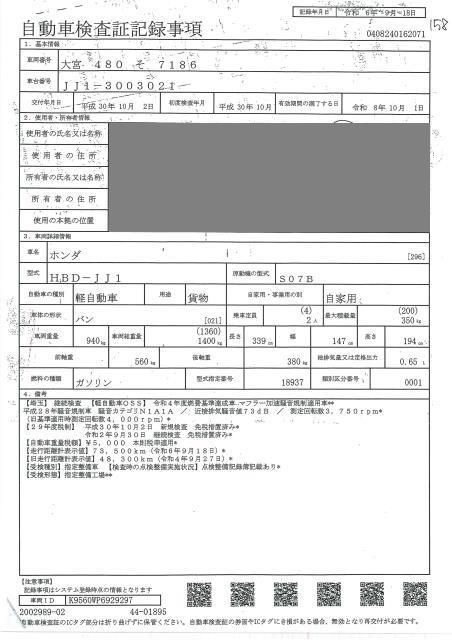 記録年月日 令和 6年 9月18日
158
自動車検査証記録事項
0408240162071
1. 基本情報
車両番号 大宮 480 そ 7186
車台番号 JJ1-3003021
交付年月日 平成30年10月 2日 初度検査年月 平成30年10月 有効期間の満了する日 令和 8年10月 1日
2. 使用者・所有者情報
使用者の氏名又は名称
使用者の住所
所有者の氏名又は名称
所有者の住所
使用の本拠の位置
3. 車両詳細情報
車名 ホンダ [296]
型式 HBD-JJ1 原動機の型式 S07B
自動車の種別 軽自動車 用途 貨物 自家用・事業用の別 自家用
車体の形状 バン [021] 乗車定員 (4) 2人 最大積載量 (200) 350kg
車両重量 940kg 車両総重量 (1360) 1400kg 長さ 339cm 幅 147cm 高さ 194cm
前軸重 560kg 後軸重 380kg 総排気量又は定格出力 0.65L
燃料の種類 ガソリン 型式指定番号 18937 類別区分番号 0001
4. 備考
【埼玉】 継続検査 【軽自動車OSS】 令和4年度燃費基準達成車 マフラー加速騒音規制適用車**
平成28年騒音規制車 騒音カテゴリN1A1A / 近接排気騒音値73dB / 測定回転数3,750rpm**
(旧基準適用時測定回転数4,000rpm)*
【29年度税制】 平成30年10月2日 新規検査 免税措置済み**
令和2年9月30日 継続検査 免税措置済み*
【自動車重量税額】¥5,000 本則税率適用*
【走行距離計表示値】73,500km(令和6年9月18日)*
【旧走行距離計表示値】48,300km(令和4年9月27日)*
【受検種別】指定整備車 【検査時の点検整備実施状況】点検整備記録簿記載あり*
【受検形態】指定整備工場**
【注意事項】
記録事項はシステム登録時点の情報となります
車両ID K9560WP6929297
2002989-02 44-01895
自動車検査証のICタグ部分は折り曲げずに保管ください。自動車検査証の券面やICタグに汚損がある場合、無効となり再交付が必要です。